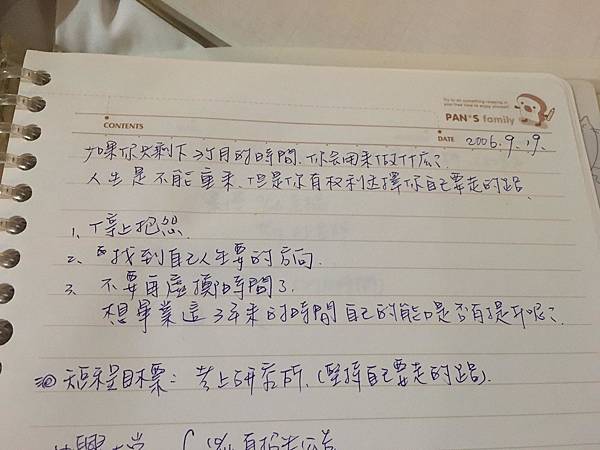 Try to do something relaxing in
your free time to enjoy yourself!
PAN'S family
CONTENTS
DATE 2006.9.19.
如果你只剩下3個月的時間,你會用來做什麼?
人生是不能重來,但是你有權利選擇你自己要走的路.
1. 停止抱怨.
2. 找到自己人生要的方向.
3. 不要再虛擲時間了.
想畢業這3年來的時間自己的能口是否有提升呢?
短程目標: 考上研究所.(堅持自己要走的路).